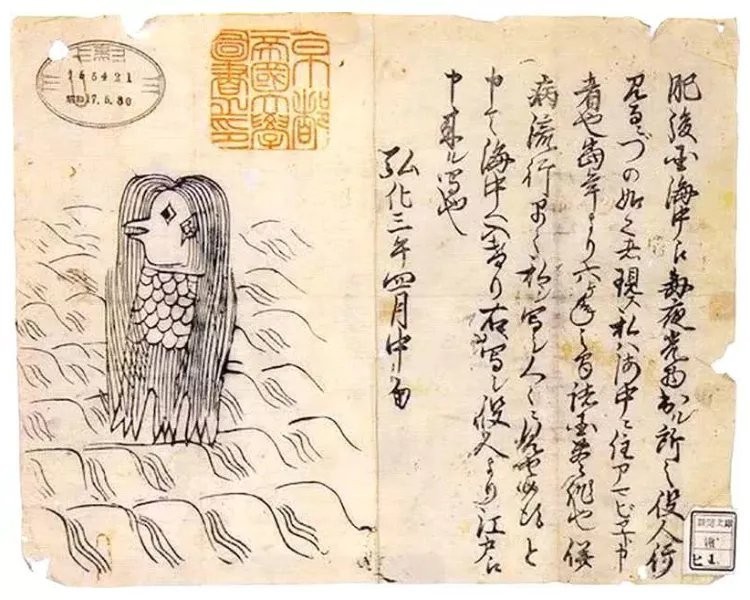 肥後国海中え毎夜光物出ル所之役人行
見るニづの如く者現ス私ハ海中ニ住アマビヱト申
者也當年より六ヶ年之間諸国豊作也併
病流行早々私ヲ写シ人々ニ見せ候得と
申て海中へ入けり右写シ役人より江戸え
申来ル写也
弘化三年四月中旬
京都
帝國大學
圖書之印
165421
昭和17.5.30
新聞文庫